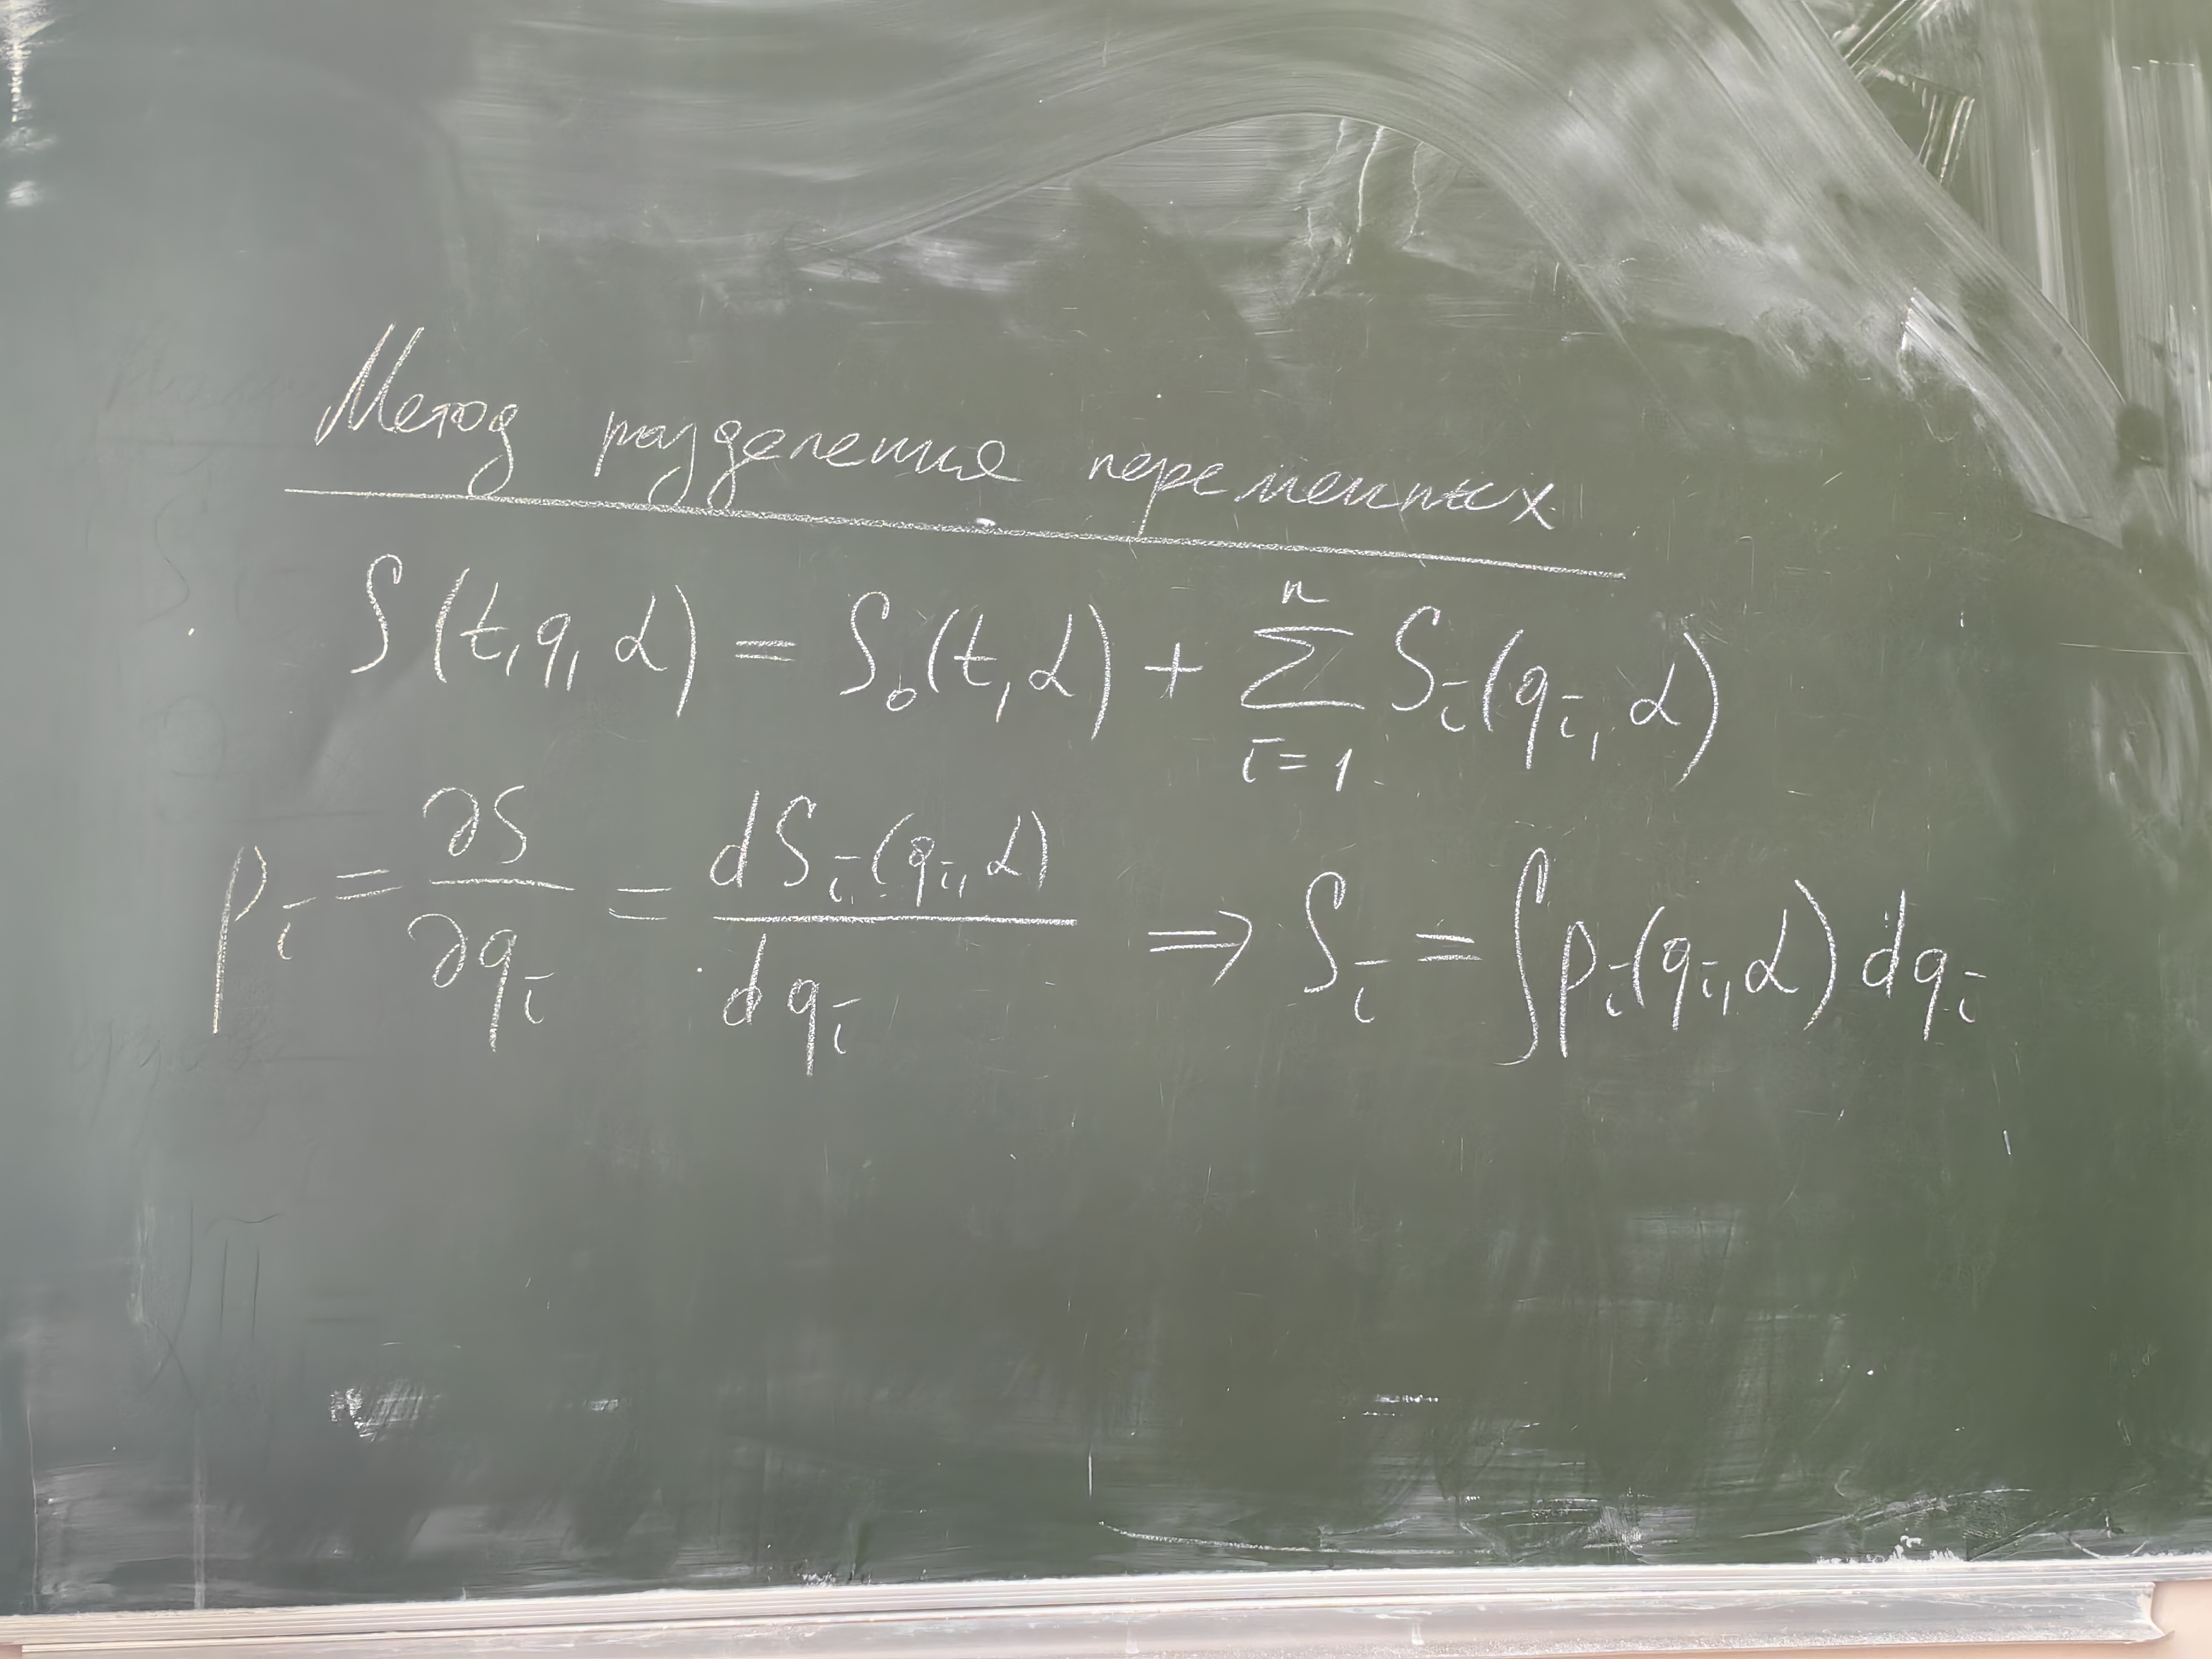 Метод разделения переменных
S(t, q, α) = S₀(t, α) + ∑ᵢ₌₁ⁿ Sᵢ(qᵢ, α)
pᵢ = ∂S/∂qᵢ = dSᵢ(qᵢ, α)/dqᵢ ⇒ Sᵢ = ∫pᵢ(qᵢ, α) dqᵢ